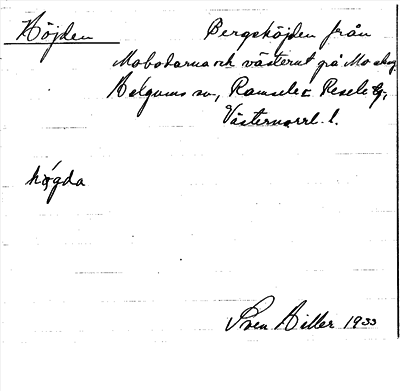 Höjden
Bergshöjden från
Mobodarna och västerut på Mo skog
Helgums sn, Ramsele o. Resele tg,
Västernorrl. l.
högda
Sven Hiller 1933